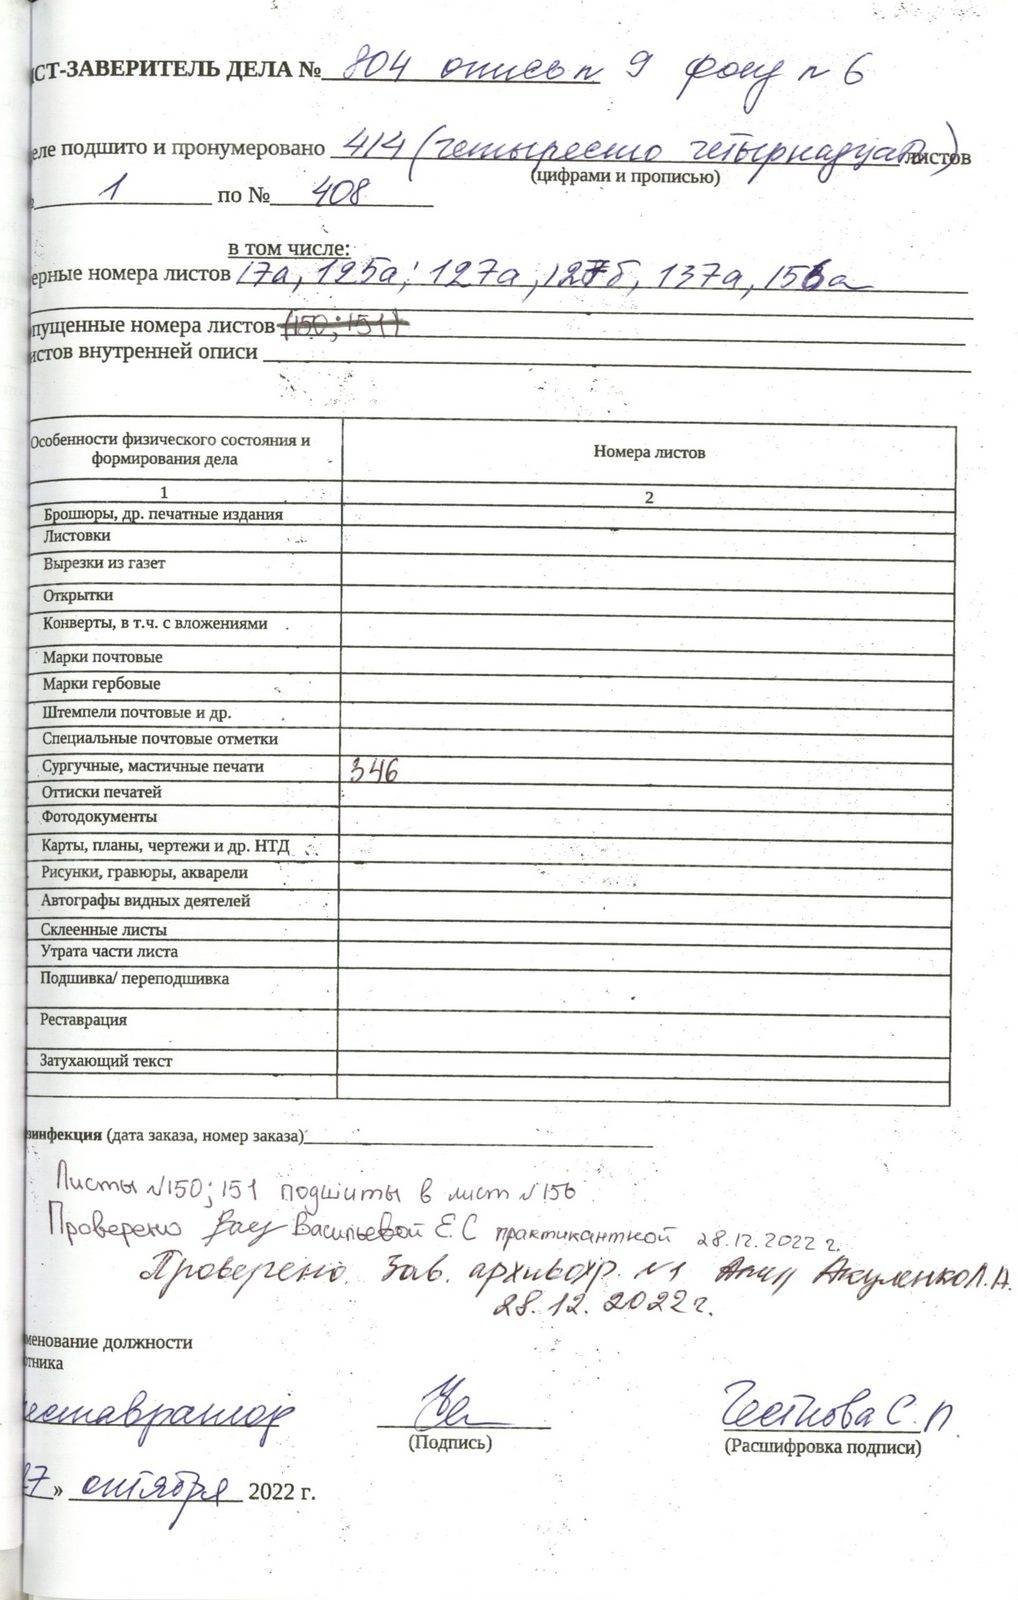 ИСТ-ЗАВЕРИТЕЛЬ ДЕЛА № 804 опись n 9 фонд n 6
еле подшито и пронумеровано 414 (четыресто четырнадцать) листов
(цифрами и прописью)
1 по № 408
в том числе:
ерные номера листов 17а, 125а; 127а, 127б, 137а, 156а
пущенные номера листов (150; 151)
истов внутренней описи
Особенности физического состояния и формирования дела
Номера листов
1
2
Брошюры, др. печатные издания
Листовки
Вырезки из газет
Открытки
Конверты, в т.ч. с вложениями
Марки почтовые
Марки гербовые
Штемпели почтовые и др.
Специальные почтовые отметки
Сургучные, мастичные печати 346
Оттиски печатей
Фотодокументы
Карты, планы, чертежи и др. НТД
Рисунки, гравюры, акварели
Автографы видных деятелей
Склеенные листы
Утрата части листа
Подшивка/ переподшивка
Реставрация
Затухающий текст
зинфекция (дата заказа, номер заказа)
Листы №150; 151 подшиты в лист №156
Проверено Васильевой Е.С практиканткой 28.12.2022 г.
Проверено. Зав. архивохр. №1 Акуленко Л.А.
28.12.2022г.
менование должности
отника
реставратор
(Подпись)
(Расшифровка подписи)
27 » октября 2022 г.